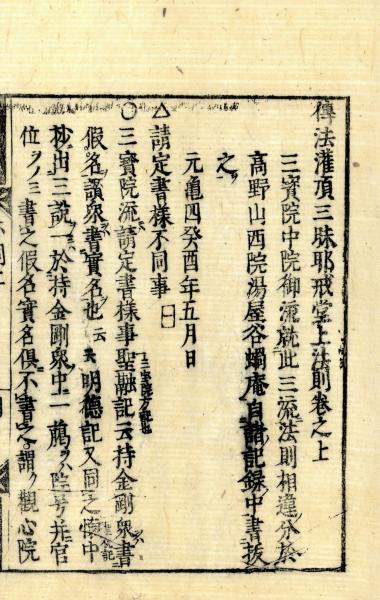 傳法灌頂三昧耶戒堂上法則卷之上
三寶院中院御流就此三流法則相違分異
高野山西院湯屋谷蝸庵自諸記録中書抜
之
元亀四癸酉年五月日
△請定書樣不同事 曰
○三寳院流請定書樣事聖融記云持金剛衆書
假名讃衆書實名也云云明德記又同之
抄出三説一於持金剛衆中一﨟ハ院号并官
位ヲノミ書之假名實名倶不書之謂ク觀心院